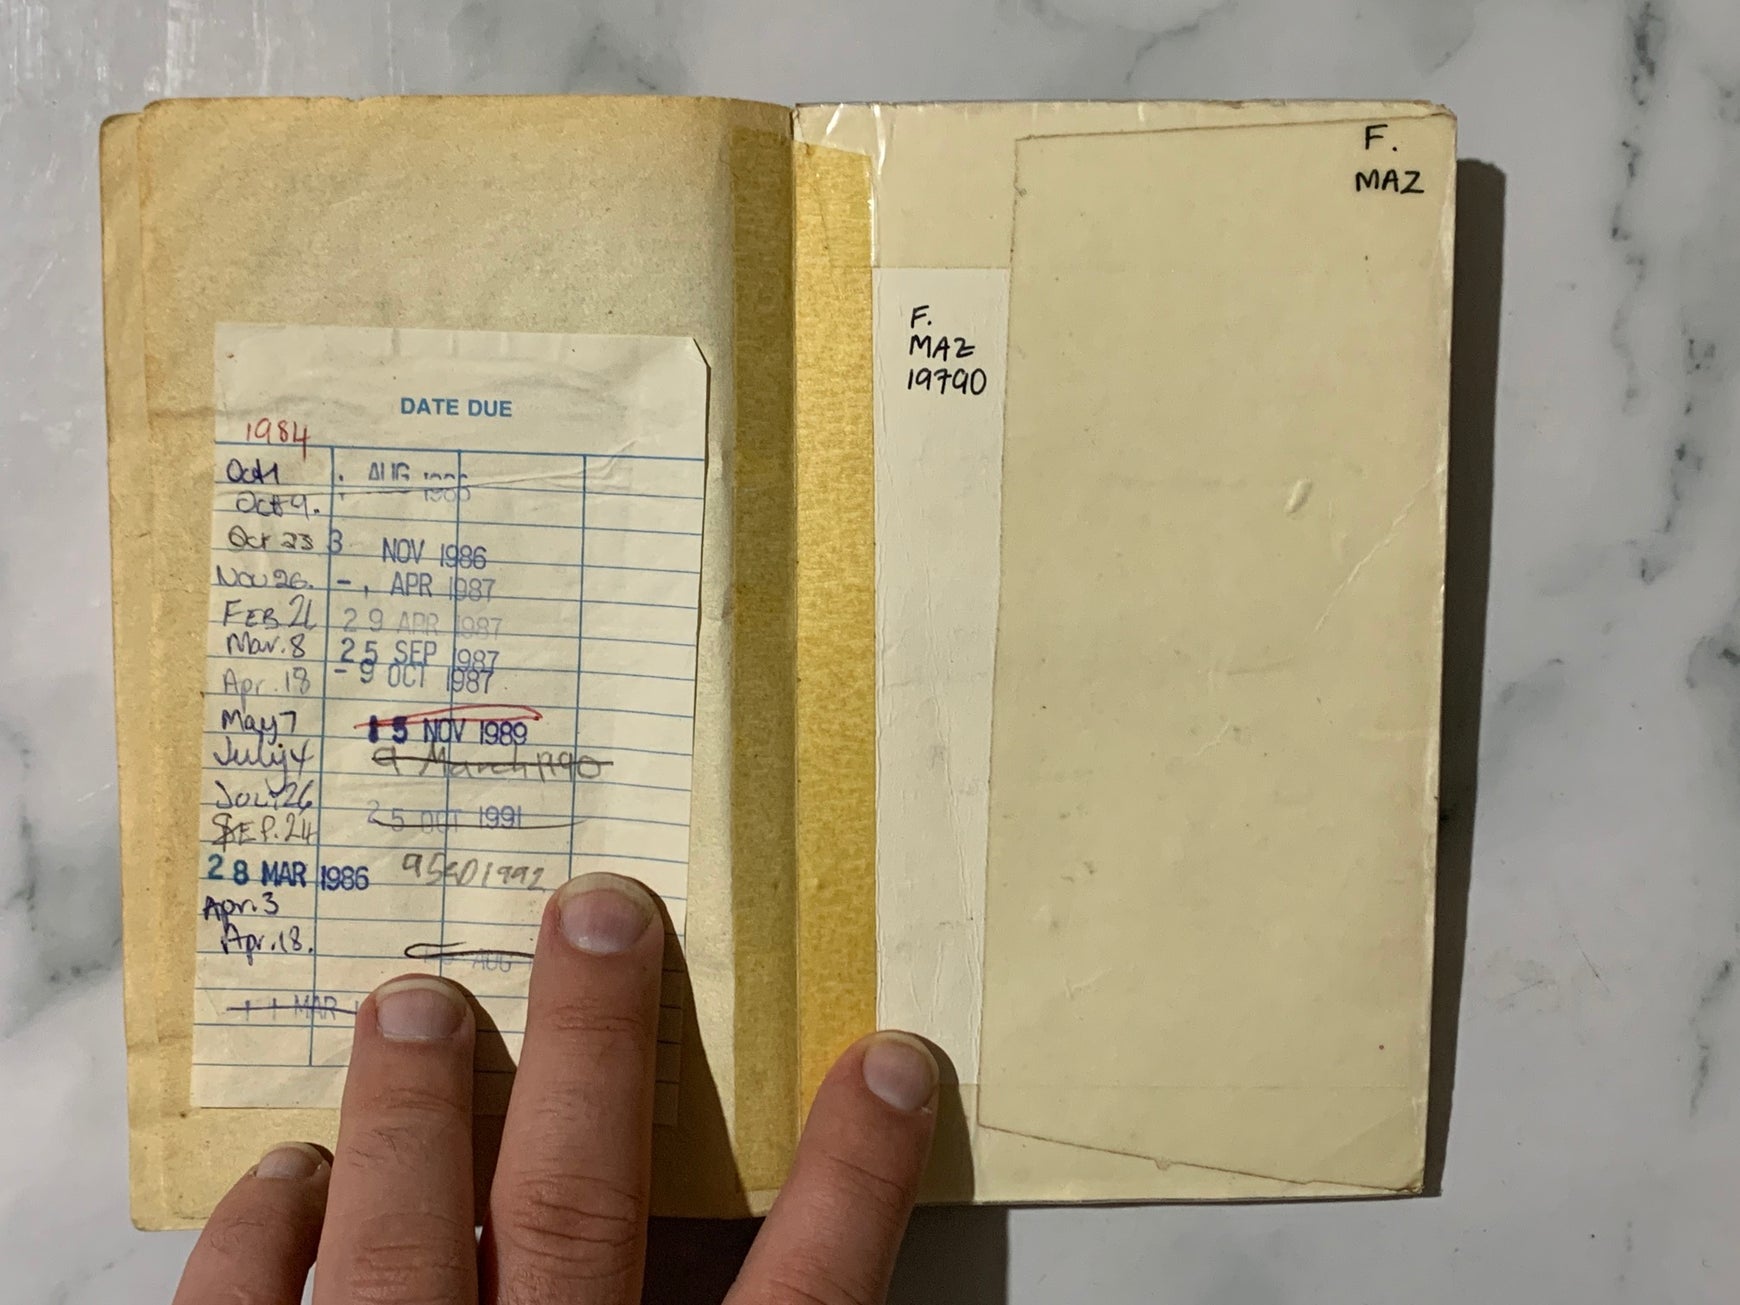 DATE DUE
1984
Oct 1
Oct 9.
Oct 23
Nov 26.
FEB 21
Mar. 8
Apr. 18
May 7
July 4
JUL. 26
SEP. 24
28 MAR 1986
Apr. 3
Apr. 18.
11 MAR
AUG
3 NOV 1986
APR 1987
29 APR 1987
25 SEP 1987
- 9 OCT 1987
15 NOV 1989
9 March 1990
25 OCT 1991
1992
AUG
F.
MAZ
19790
F.
MAZ